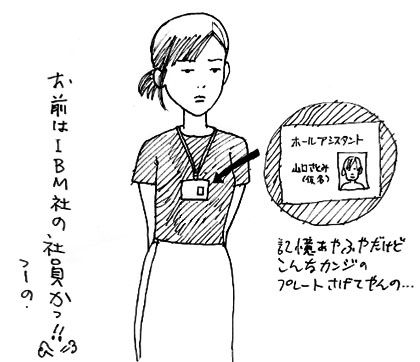 お前はIBM社の社員かっ!!
つーの。
ホールアシスタント
山口さとみ
(仮名)
記憶あやふやだけど
こんなカンジの
プレートさげてやんの…